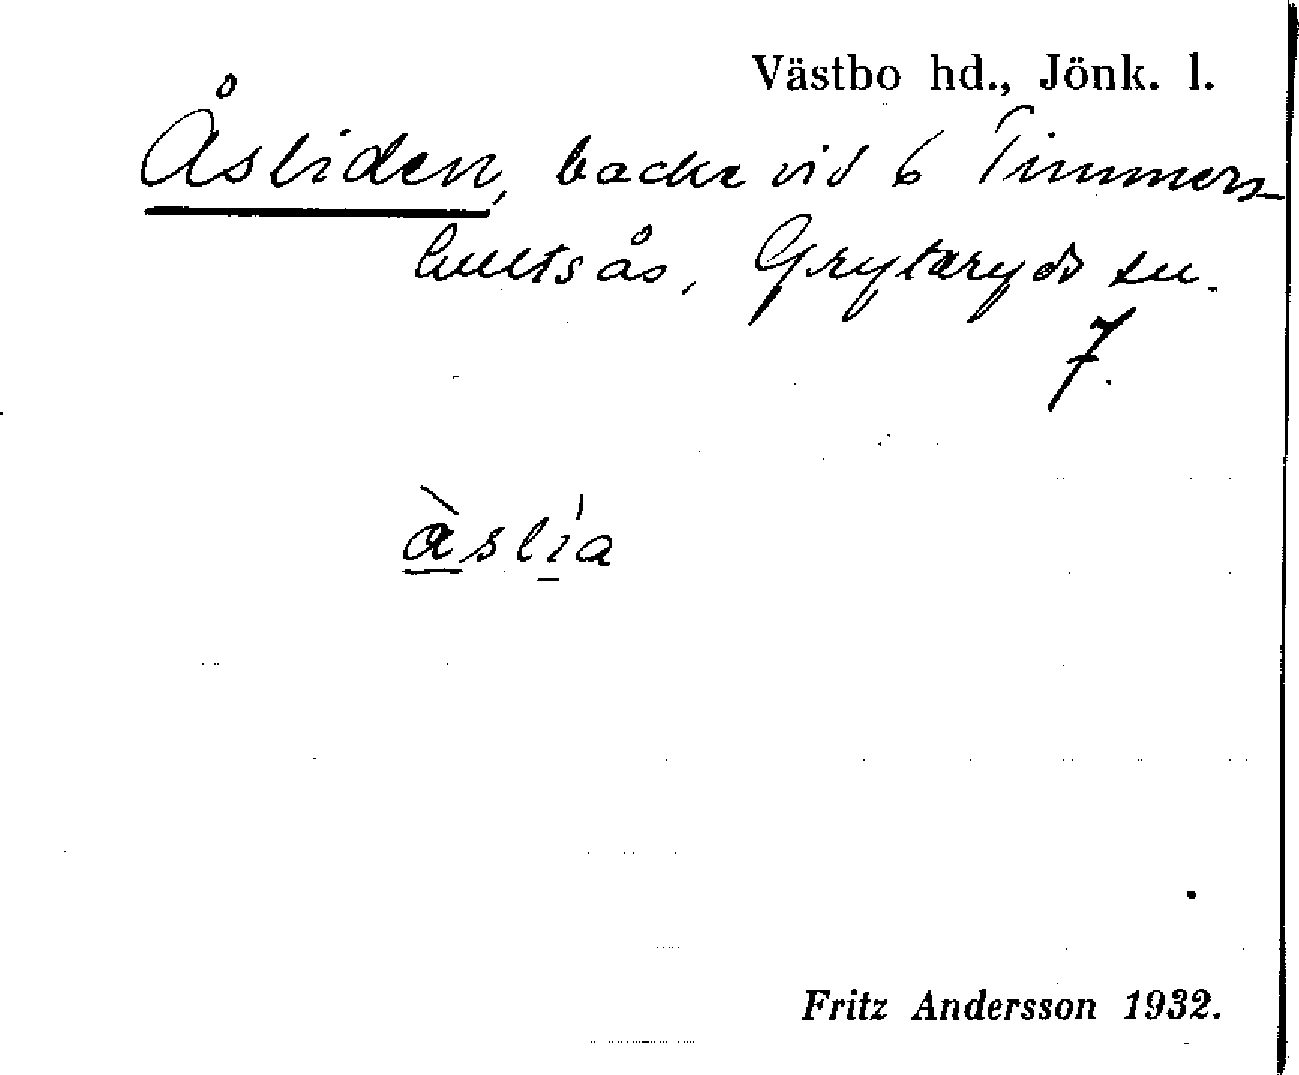 Västbo hd., Jönk. l.
Åsliden, backe vid 6 Timmers-
hultsås, Gryteryds sn.
7.
àslía
Fritz Andersson 1932.